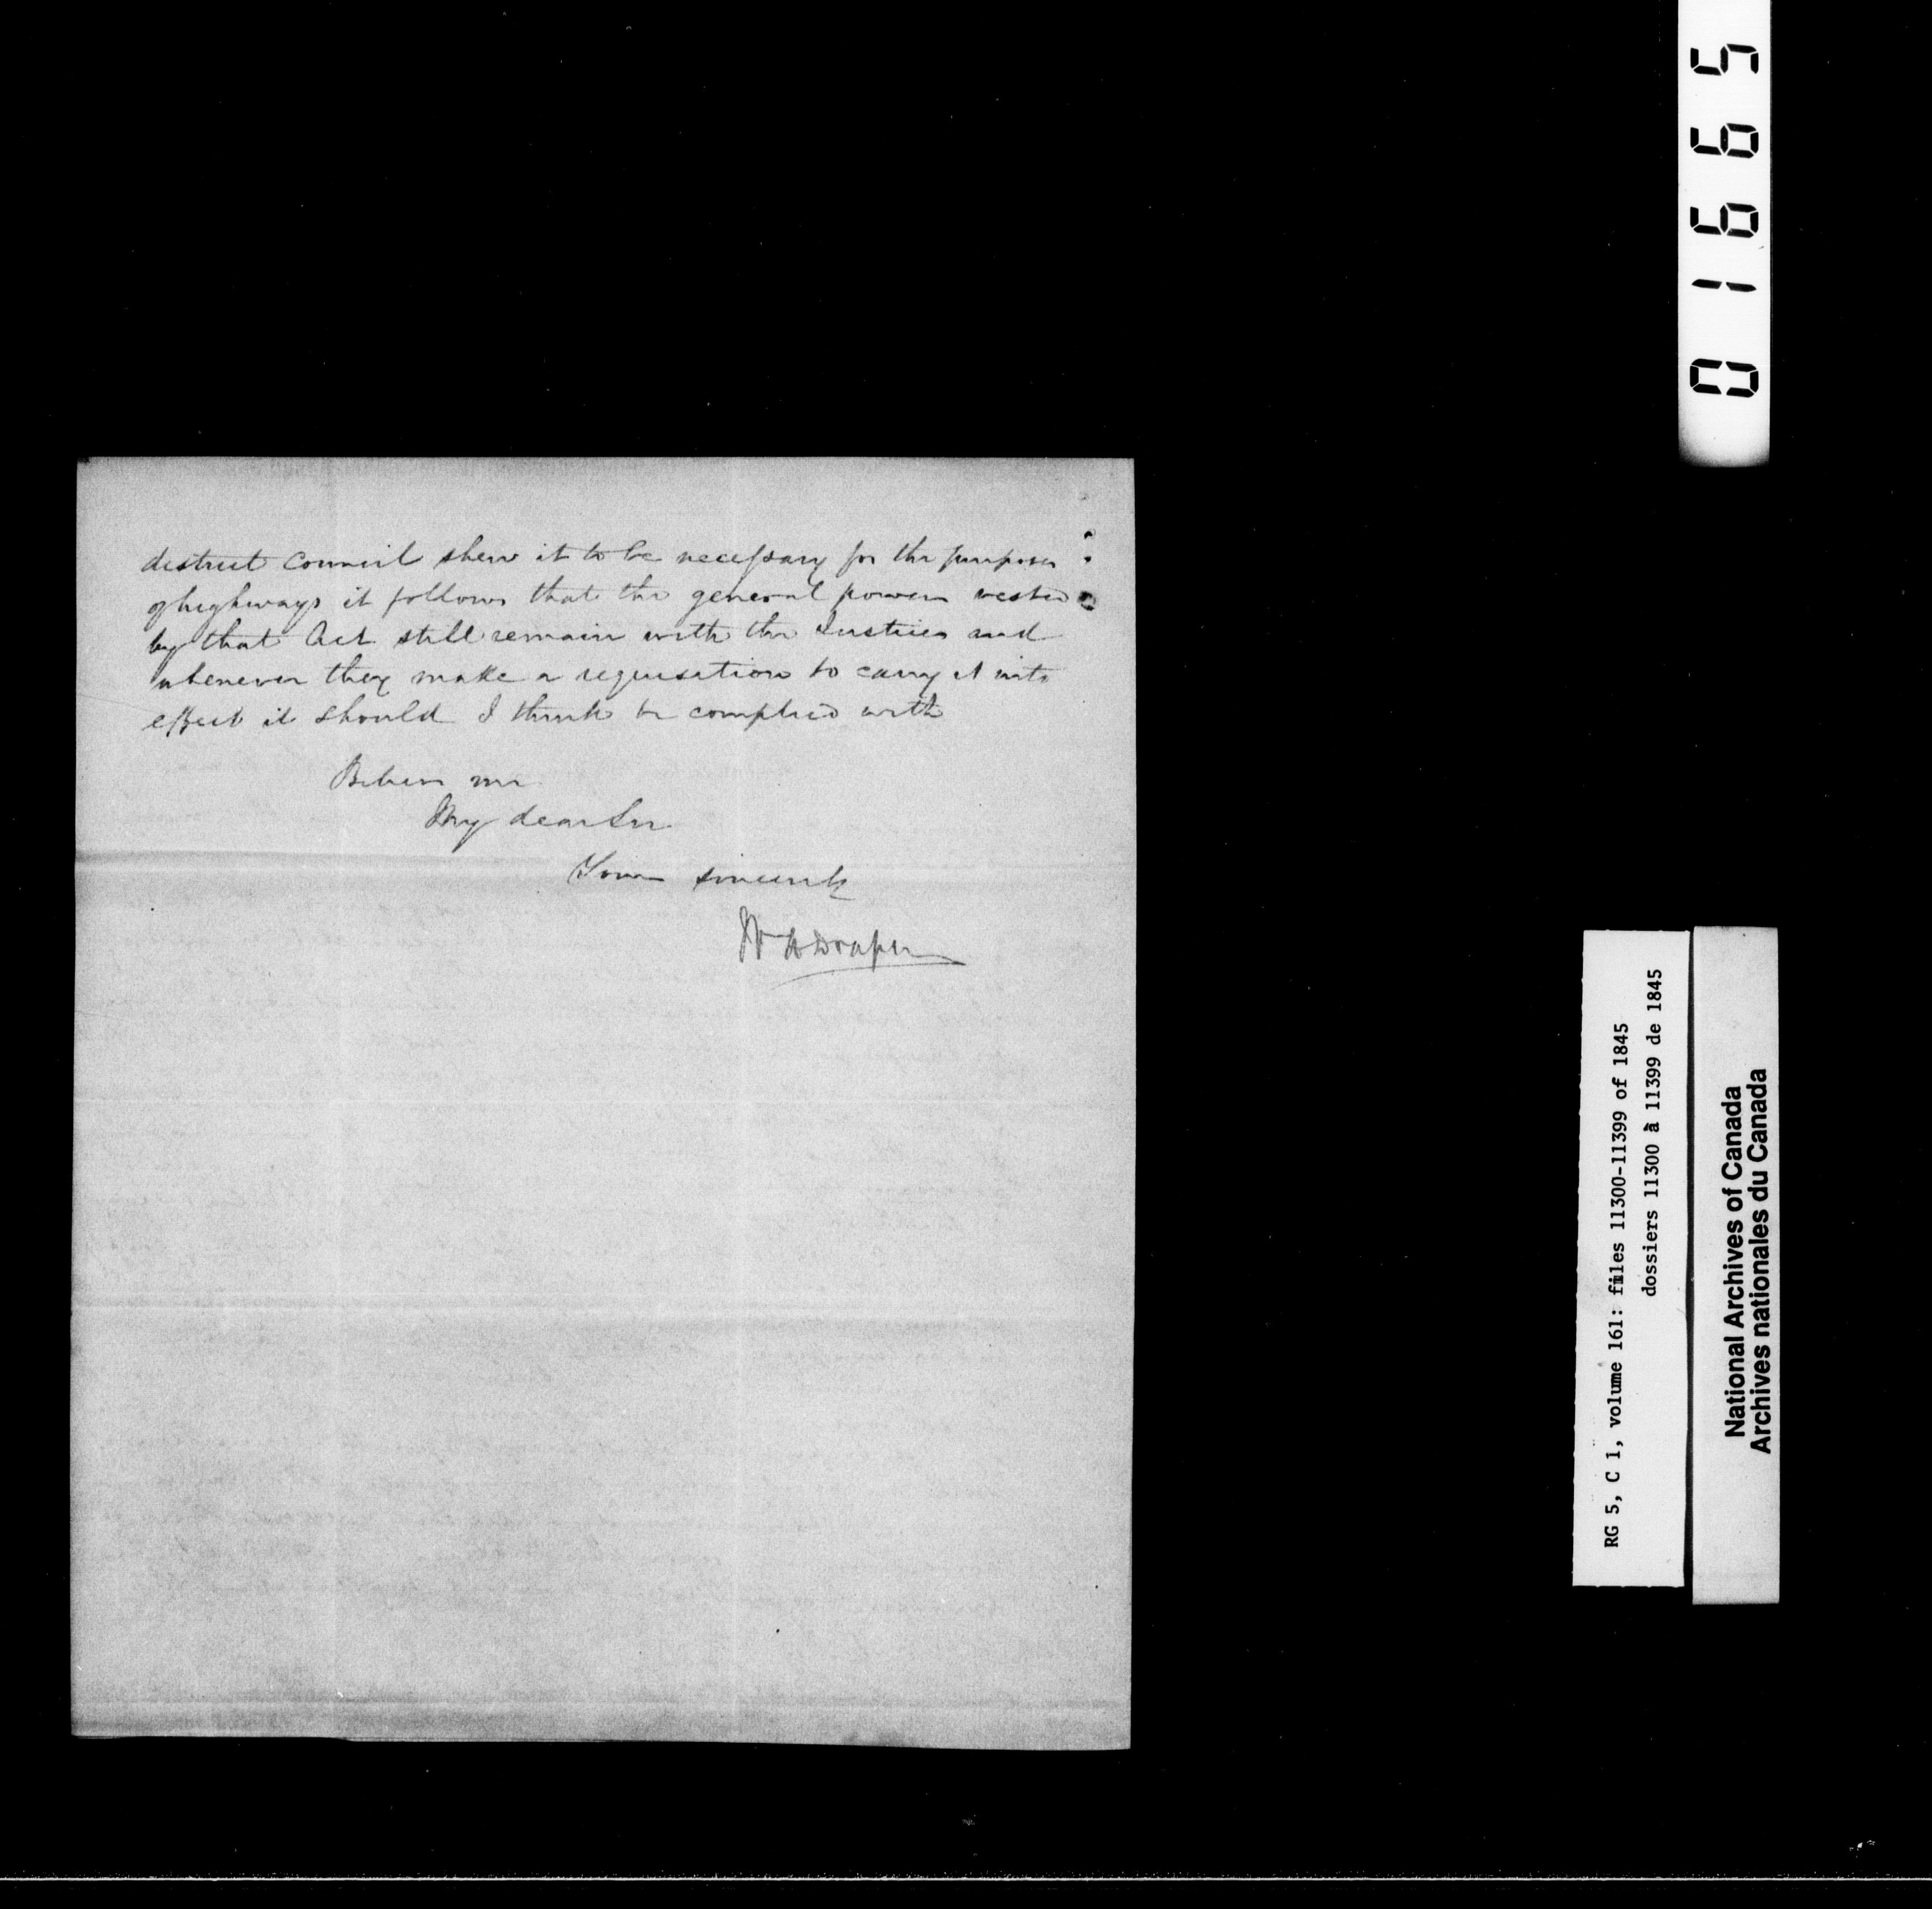 district Council shew it to be necessary for the purposes
of highways it follows that the general powers vested
by that Act still remain with the Justices and
whenever they make a requisition to carry it into
effect it should I think be complied with
Believe me
My dear Sir
Yours sincerely
Wm H Draper
01665
RG 5, C 1, volume 161: files 11300-11399 of 1845
dossiers 11300 à 11399 de 1845
National Archives of Canada
Archives nationales du Canada